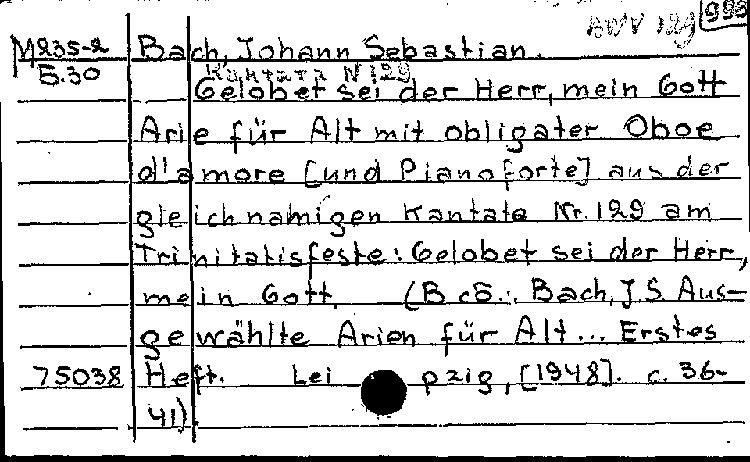 BWV 129 993
M235-2 Bach, Johann Sebastian.
Б.30 Кантата N 129
Gelobet sei der Herr, mein Gott
Arie für Alt mit obligater Oboe
d'amore [und Pianoforte] aus der
gleichnamigen Kantate Nr. 129 am
Trinitatisfeste: Gelobet sei der Herr,
mein Gott. (В сб.: Bach, J.S. Aus-
gewählte Arien für Alt... Erstes
75038 Heft. Leipzig, [1948]. с. 36-
41)